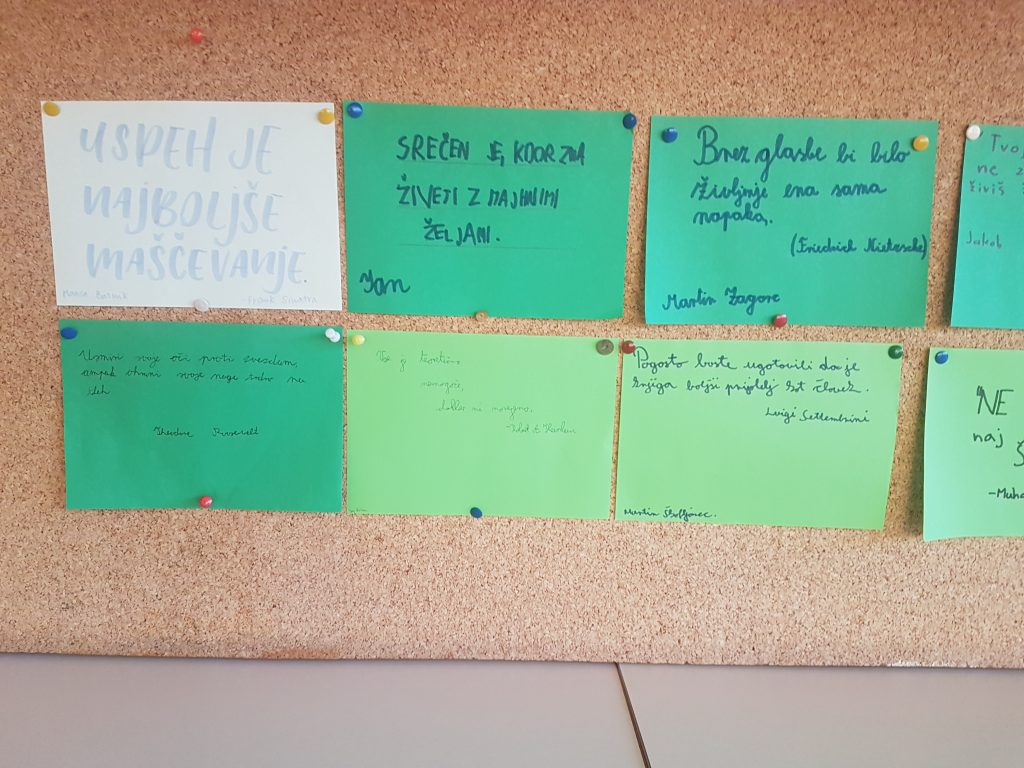 USPEH JE
NAJBOLJŠE
MAŠČEVANJE.
-Frank Sinatra
SREČEN JE, KDOR ZNA
ŽIVETI Z MAJHNIMI
ŽELJAMI.
Jan
Brez glasbe bi bilo
življenje ena sama
napaka.
(Friedrich Nietzsche)
Martin Zagorc
Tvoj
ne
živiš
Jakob
Usmiri svoje oči proti zvezdam,
ampak ohrani svoje noge trdno na
tleh
Theodore Roosevelt
Vse je teoretično
nemogoče,
dokler ni narejeno.
Pogosto boste ugotovili da je
knjiga boljši prijatelj kot človek.
Luigi Settembrini
Martin
NE
naj
-Muha